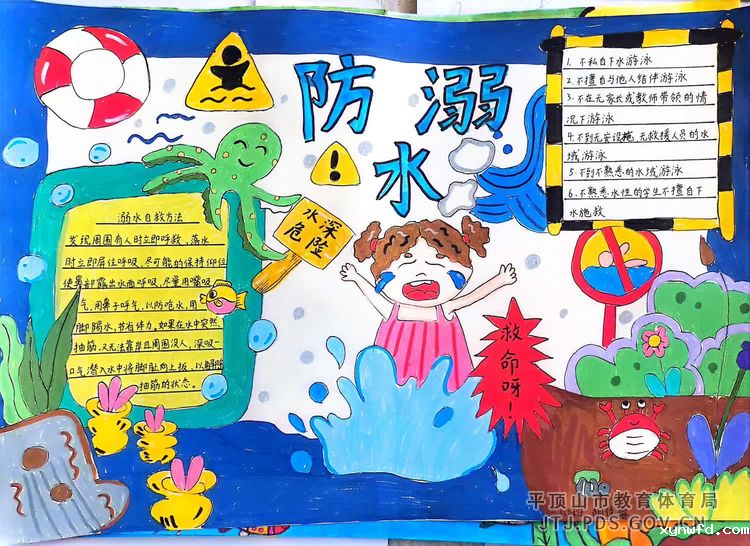 防溺水
1. 不私自下水游泳
2. 不擅自与他人结伴游泳
3. 不在无家长或教师带领的情
况下游泳
4. 不到无安设施 无救援人员的水
域游泳
5. 不到不熟悉的水域游泳
6. 不熟悉水性的学生不擅自下
水施救
溺水自救方法
发现周围有人时立即呼救，落水
时立即屏住呼吸，尽可能的保持仰位
使鼻部露出水面呼吸，尽量用嘴吸
气，用鼻子呼气，以防呛水，用
脚踢水，节省体力。如果在水中突然
抽筋，又无法靠岸且周围没人，深吸一
口气潜入水中将脚趾向上扳，以解除
抽筋的状态。
水深
危险
救命呀！
平顶山市教育体育局
JTJ.PDS.GOV.CN
xynwfd.com